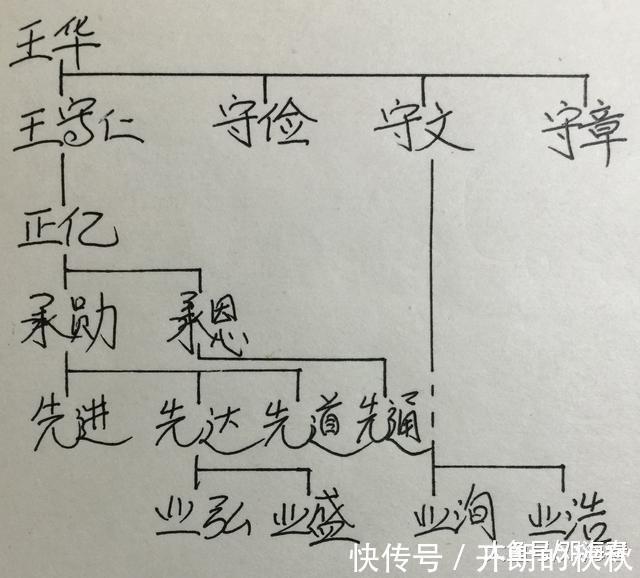 王华
王守仁 守俭 守文 守章
正亿
承勋 承恩
先进 先达 先道 先通
业弘 业盛 业洵 业浩
快传号 / 开朗的秋秋